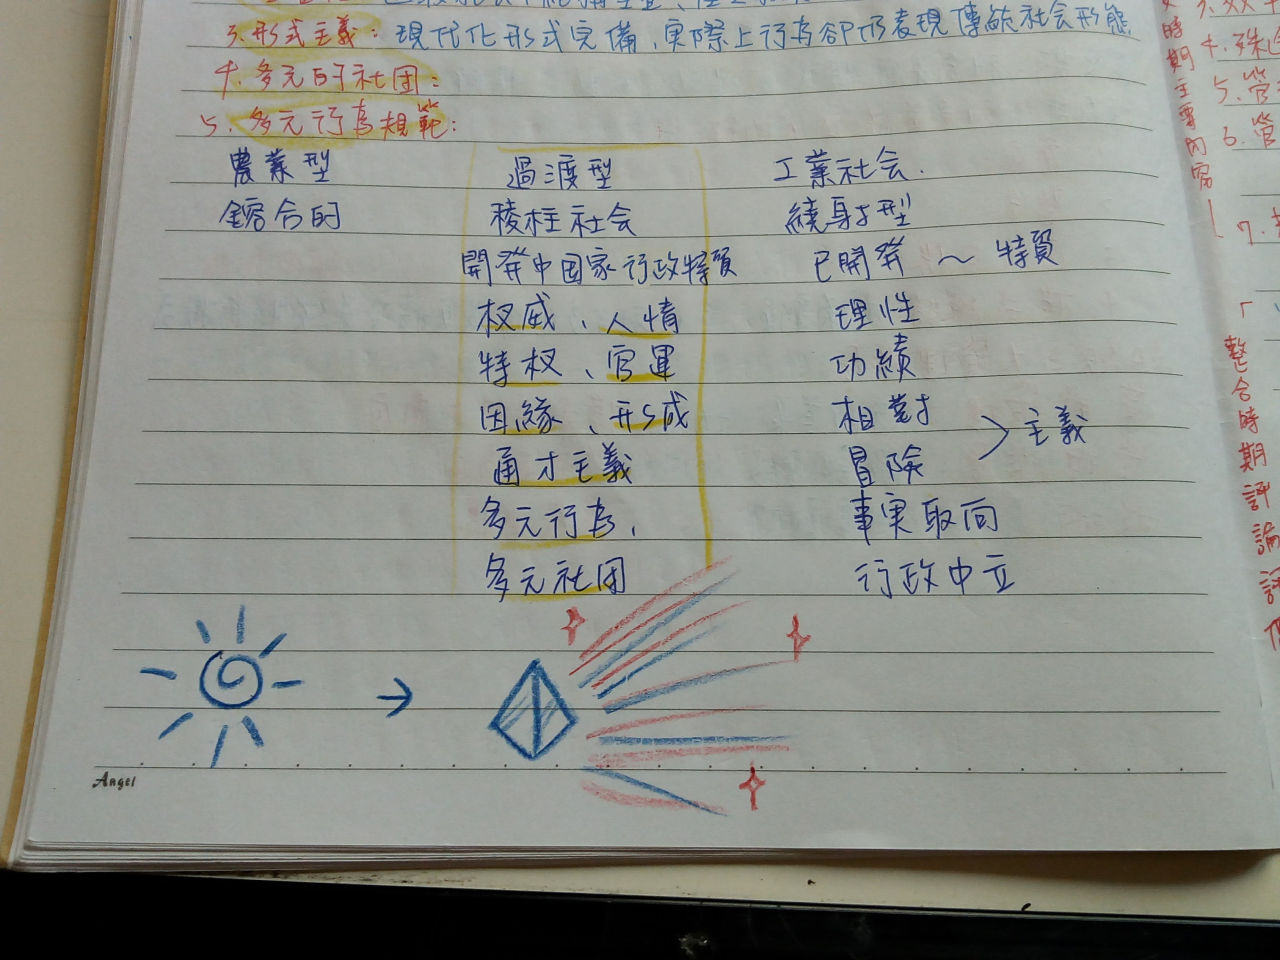 3. 形式主義：現代化形式完備，実際上行為卻仍表現傳統社会形態
4. 多元的社团：
5. 多元行為規範：
農業型 過渡型 工業社会.
鎔合的 稜柱社会 繞射型
開発中国家行政特質 已開発～特質
权威、人情 理性
特权、官運 功績
因緣、形式 相對
通才主義 冒險 > 主義
多元行為, 事実取向
多元社团 行政中立
Angel
時期主要內容
4. 殊
5. 管
6. 管
7.
「整合時期評論